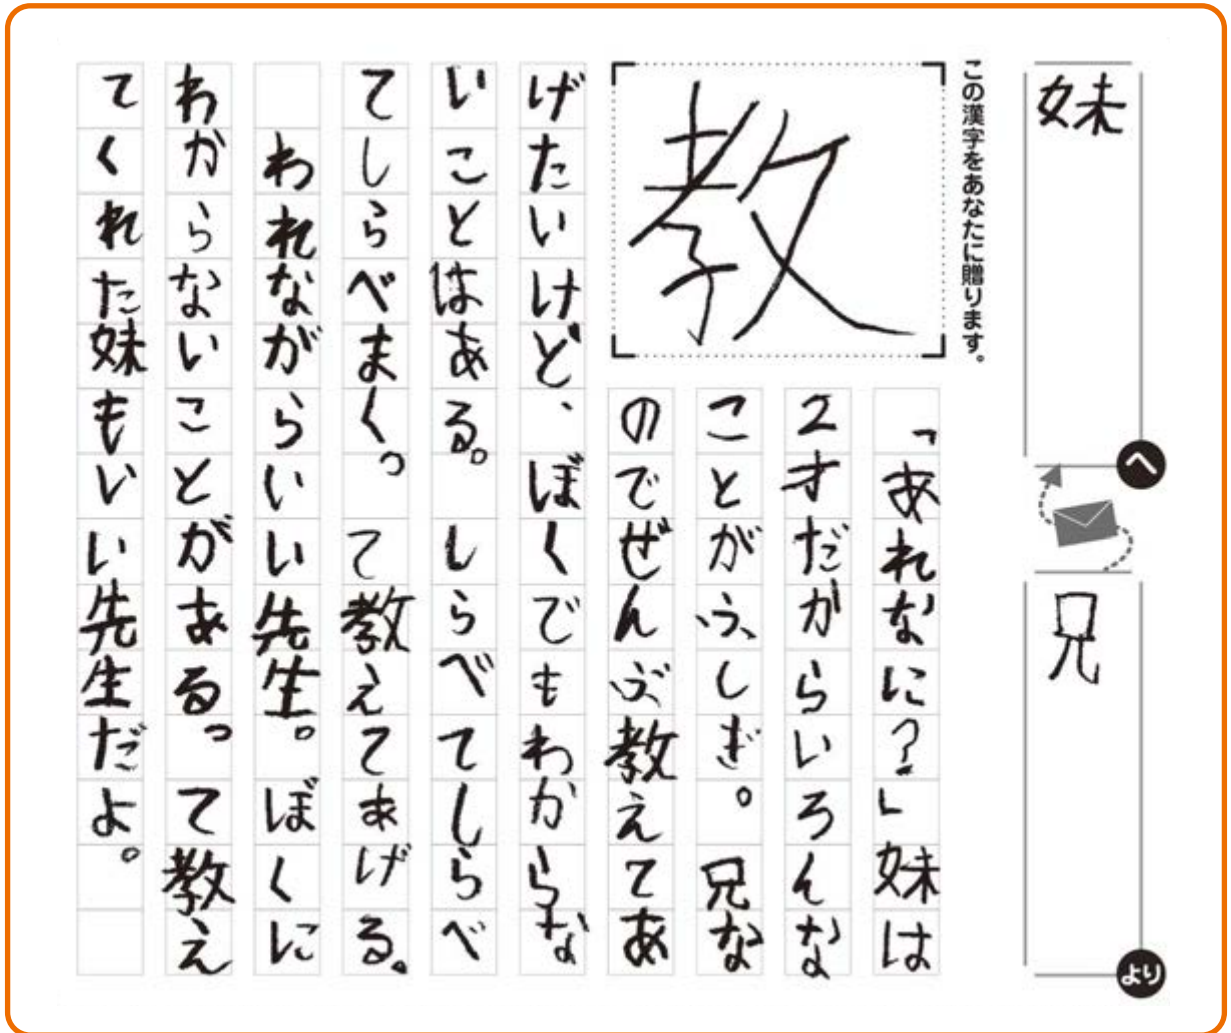 妹
へ
兄
より
この漢字をあなたに贈ります。
教
「あれなに？」妹は
2才だからいろんな
ことがふしぎ。兄な
のでぜんぶ教えてあ
げたいけど、ぼくでもわからな
いことはある。しらべてしらべ
てしらべまくって教えてあげる。
われながらいい先生。ぼくに
わからないことがあるって教え
てくれた妹もいい先生だよ。